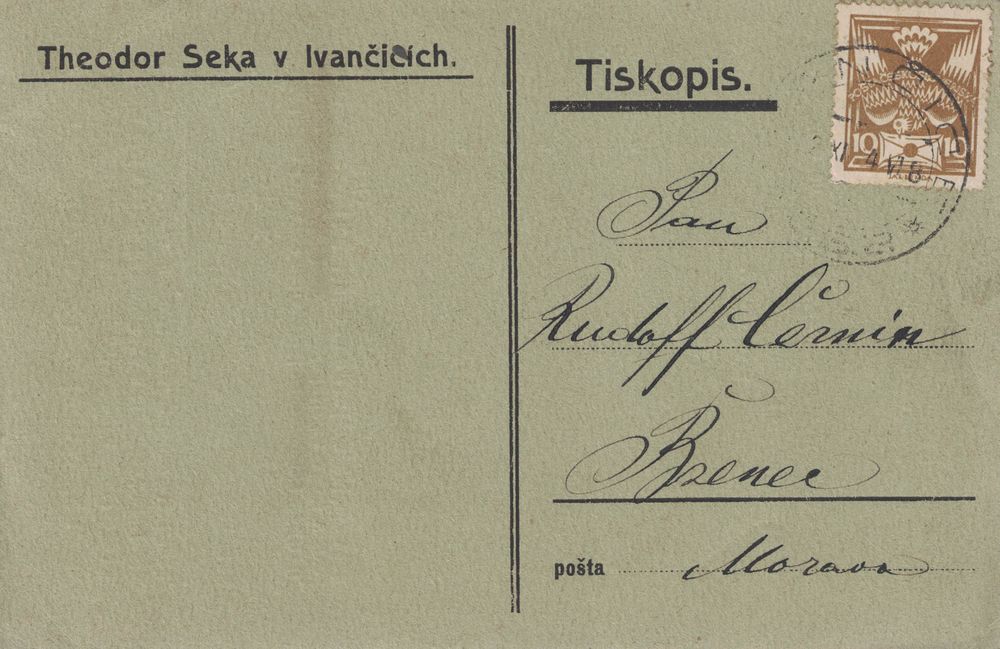 Theodor Seka v Ivančicích.
Tiskopis.
10 10
Pan
Rudolf Černin
Bzenec
pošta Morava